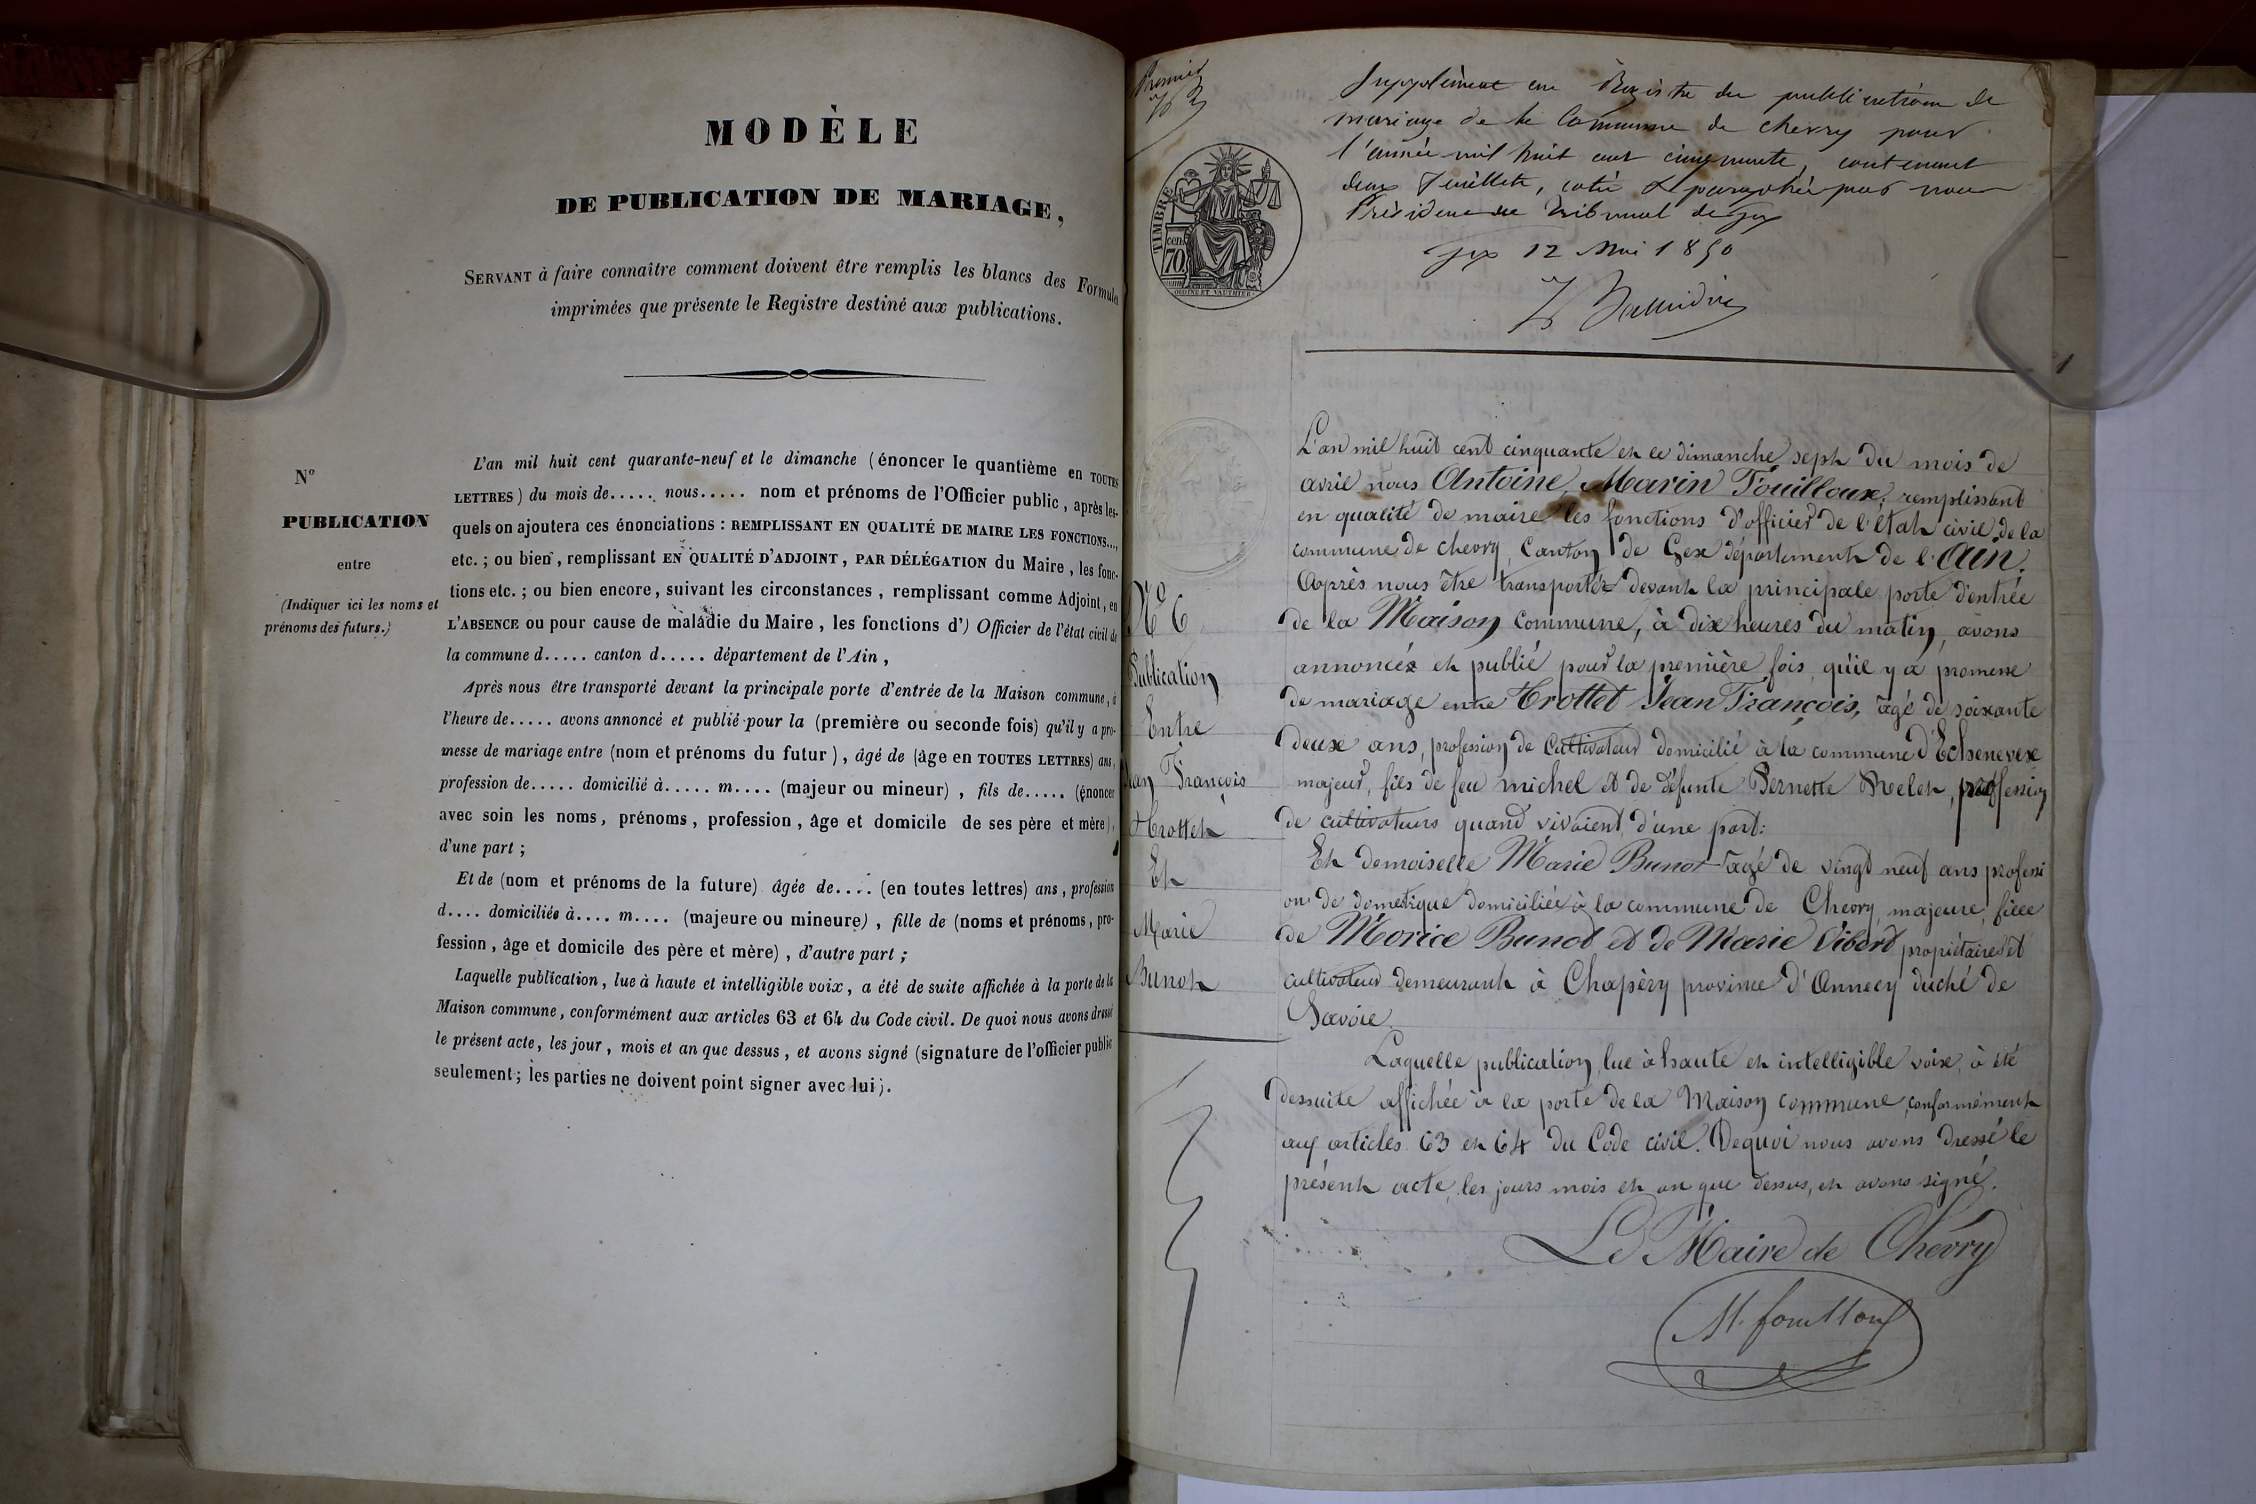 MODÈLE
DE PUBLICATION DE MARIAGE,
SERVANT à faire connaître comment doivent être remplis les blancs des Formules
imprimées que présente le Registre destiné aux publications.
N°
PUBLICATION
entre
(Indiquer ici les noms et
prénoms des futurs.)
L'an mil huit cent quarante-neuf et le dimanche (énoncer le quantième en TOUTES
LETTRES) du mois de..... nous..... nom et prénoms de l'Officier public, après les-
quels on ajoutera ces énonciations : REMPLISSANT EN QUALITÉ DE MAIRE LES FONCTIONS...,
etc. ; ou bien, remplissant EN QUALITÉ D'ADJOINT, PAR DÉLÉGATION du Maire, les fonc-
tions etc. ; ou bien encore, suivant les circonstances, remplissant comme Adjoint, en
L'ABSENCE ou pour cause de maladie du Maire, les fonctions d') Officier de l'état civil de
la commune d..... canton d..... département de l'Ain,
Après nous être transporté devant la principale porte d'entrée de la Maison commune, à
l'heure de..... avons annoncé et publié pour la (première ou seconde fois) qu'il y a pro-
messe de mariage entre (nom et prénoms du futur), âgé de (âge en TOUTES LETTRES) ans,
profession de..... domicilié à..... m.... (majeur ou mineur), fils de..... (énoncer
avec soin les noms, prénoms, profession, âge et domicile de ses père et mère),
d'une part ;
Et de (nom et prénoms de la future) âgée de.... (en toutes lettres) ans, profession
d.... domiciliée à.... m.... (majeure ou mineure), fille de (noms et prénoms, pro-
fession, âge et domicile des père et mère), d'autre part ;
Laquelle publication, lue à haute et intelligible voix, a été de suite affichée à la porte de la
Maison commune, conformément aux articles 63 et 64 du Code civil. De quoi nous avons dressé
le présent acte, les jour, mois et an que dessus, et avons signé (signature de l'officier public
seulement ; les parties ne doivent point signer avec lui).
Premier
Supplément au Registre de publication de
mariage de la Commune de chevry pour
l'année mil huit cent cinquante, contenant
deux feuillets, coté & paraphé par nous
Président du Tribunal de Gex
Gex 12 Mai 1850
TIMBRE
cen
70
1
L'an mil huit cent cinquante et ce dimanche sept du mois de
avril nous Antoine, Marin Fouilloux, remplissant
en qualité de maire les fonctions d'officier de l'état civil de la
commune de chevry, Canton de Gex département de l'Ain.
Après nous être transportéz devant la principale porte d'entrée
de la Maison Commune, à dix heures du matin, avons
annoncéz et publié pour la première fois, qu'il y a promesse
de mariage entre Trottet Jean François, âgé de soixante
deux ans, profession de Cultivateur domicilié à la commune d'Echenevex
majeur, fils de feu michel et de défunte Pernette Melet, profession
de cultivateurs quand vivaient, d'une part:
Et demoiselle Marie Bunot âgé de vingt neuf ans professi
on de domestique domiciliée à la commune de Chevry, majeure, fille
de Morice Bunot et de Marie Vibert propriétaires et
cultivateur demeurant à Chapéry province d'Annecy duché de
Savoie.
Laquelle publication, lue à haute et intelligible voix, à été
dessuite affichée à la porte de la Maison commune, conformément
aux articles 63 et 64 du Code civil. De quoi nous avons dressé le
présent acte, les jours mois et an que dessus, et avons signé.
Le Maire de Chevry
M. fouilloux
N° 6
Publication
Entre
Jean François
Trottet
Et
Marie
Bunot